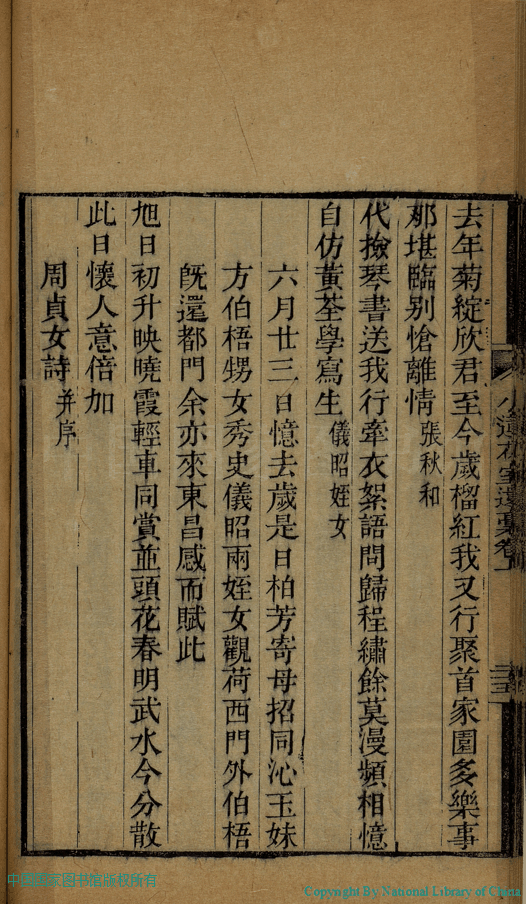 去年菊綻欣君至今歲榴紅我又行聚首家園多樂事
那堪臨别愴離情張秋和
代撿琴書送我行牽衣絮語問歸程繡餘莫漫頻相憶
自仿黃荃學寫生儀昭姪女
六月廿三日憶去歲是日柏芳寄母招同沁玉妹
方伯梧甥女秀史儀昭兩姪女觀荷西門外伯梧
旣還都門余亦來東昌感而賦此
旭日初升映曉霞輕車同賞並頭花春明武水今分散
此日懷人意倍加
周貞女詩并序
中國國家圖書館版权所有
Copyright By National Library of China